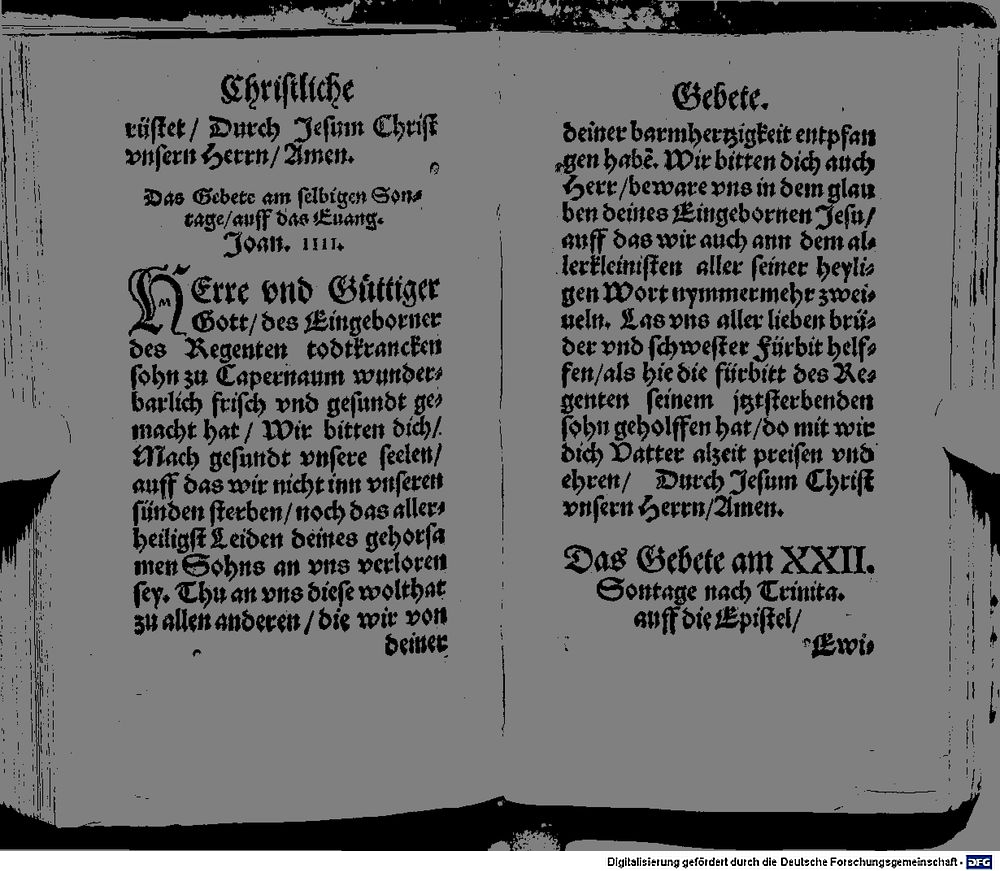 Christliche
rüstet / Durch Jesum Christ
vnsern Herrn / Amen.
Das Gebete am selbigen Son⸗
tage / auff das Euang.
Joan. IIII.
HErre vnd Güttiger
Gott / des Eingeborner
des Regenten todtkrancken
sohn zu Capernaum wunder⸗
barlich frisch vnd gesundt ge⸗
macht hat / Wir bitten dich /
Mach gesundt vnsere seelen /
auff das wir nicht inn vnseren
sünden sterben / noch das aller⸗
heiligst Leiden deines gehorsa
men Sohns an vns verloren
sey. Thu an vns diese wolthat
zu allen anderen / die wir von
deiner
Gebete.
deiner barmhertzigkeit entpfan
gen habē. Wir bitten dich auch
Herr / beware vns in dem glau
ben deines Eingebornen Jesu /
auff das wir auch ann dem al⸗
lerkleinisten aller seiner heyli⸗
gen Wort nymmermehr zwei⸗
ueln. Las vns aller lieben brü⸗
der vnd schwester Fürbit helf⸗
fen / als hie die fürbitt des Re⸗
genten seinem jtztsterbenden
sohn geholffen hat / do mit wir
dich Vatter alzeit preisen vnd
ehren / Durch Jesum Christ
vnsern Herrn / Amen.
Das Gebete am XXII.
Sontage nach Trinita.
auff die Epistel /
Ewi⸗
Digitalisierung gefördert durch die Deutsche Forschungsgemeinschaft - DFG